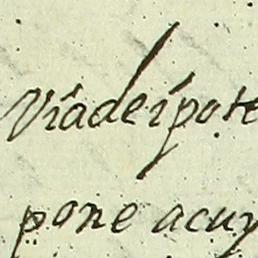 Viadeipote
pone acuy